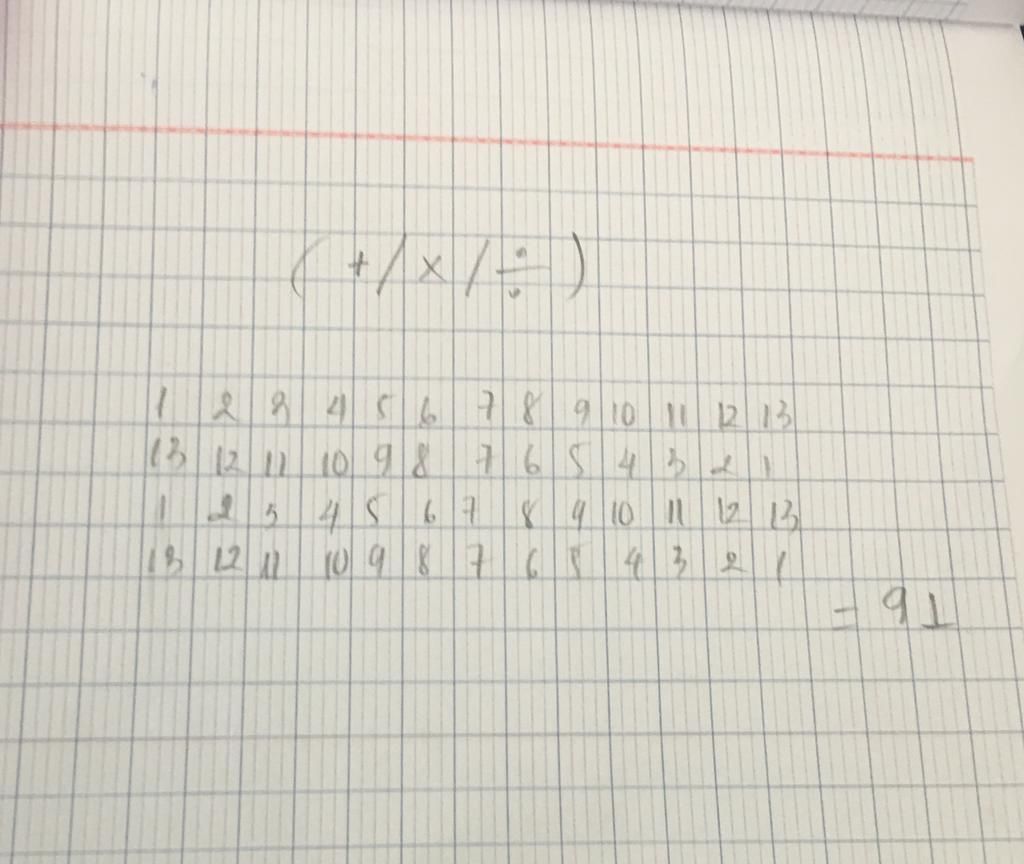 ( + / × / ÷ )
1 2 3 4 5 6 7 8 9 10 11 12 13
13 12 11 10 9 8 7 6 5 4 3 2 1
1 2 3 4 5 6 7 8 9 10 11 12 13
13 12 11 10 9 8 7 6 5 4 3 2 1
= 91